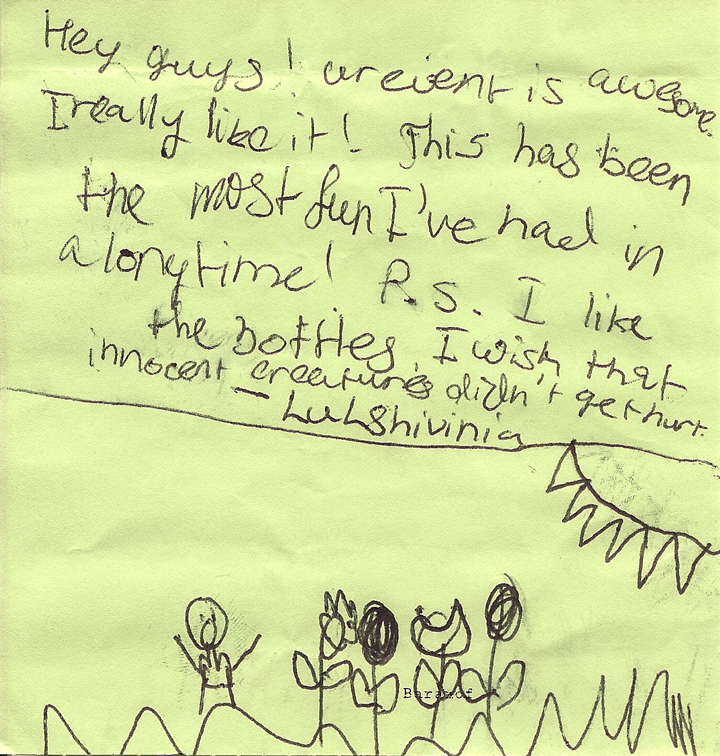 Hey guys! ur event is awesome.
I really like it! This has been
the most fun I've had in
a long time! P.S. I like
the bottles, I wish that
innocent creatures didn't get hurt.
— LuLshivinia
Baranof